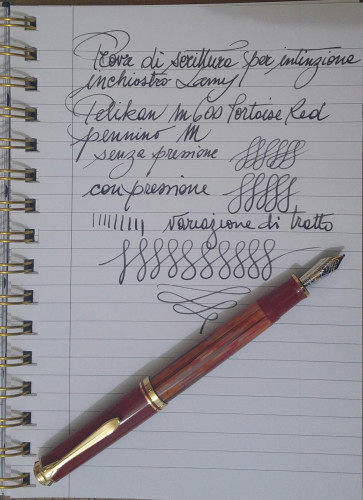 Prova di scrittura per intinzione
inchiostro Lamy
Pelikan M600 Tortoise Red
pennino M
senza pressione
con pressione
variazione di tratto